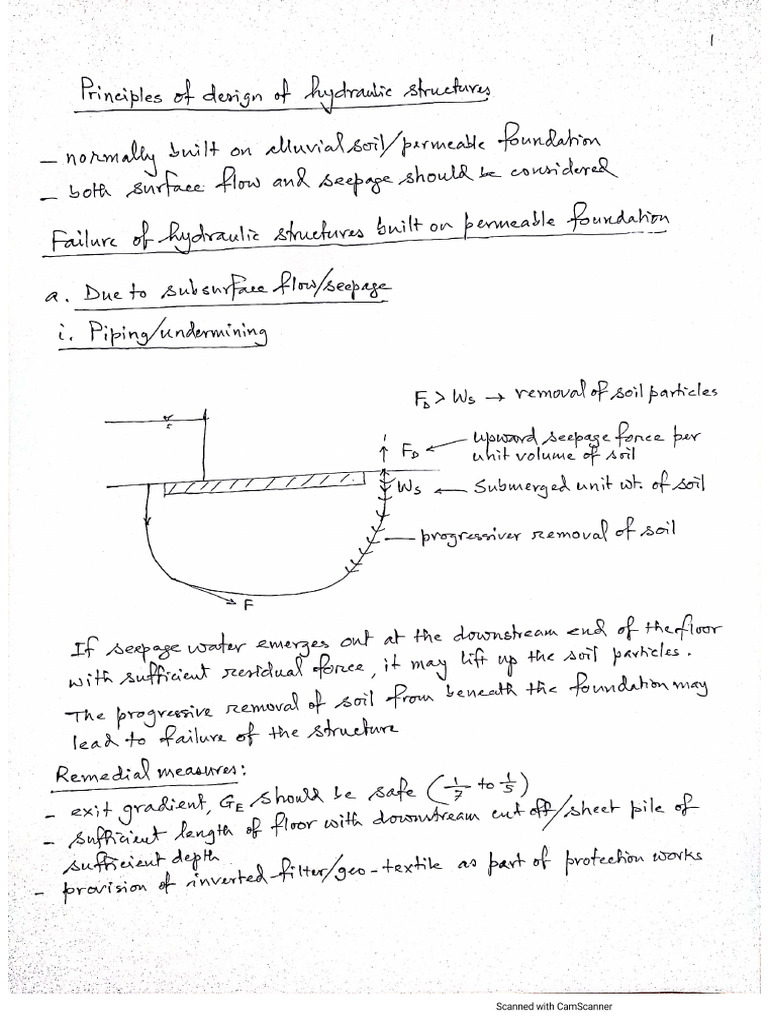 1
Principles of design of hydraulic structures
- normally built on alluvial soil/permeable foundation
- both surface flow and seepage should be considered
Failure of hydraulic structures built on permeable foundation
a. Due to subsurface flow/seepage
i. Piping/undermining
F_D > W_S → removal of soil particles
F_D ← upward seepage force per
unit volume of soil
W_S ← Submerged unit wt. of soil
progressiver removal of soil
F
If seepage water emerges out at the downstream end of the floor
with sufficient residual force, it may lift up the soil particles.
The progressive removal of soil from beneath the foundation may
lead to failure of the structure
Remedial measures:
- exit gradient, G_E should be safe (1/7 to 1/5)
- sufficient length of floor with downstream cut off/sheet pile of
sufficient depth
- provision of inverted-filter/geo-textile as part of protection works
Scanned with CamScanner